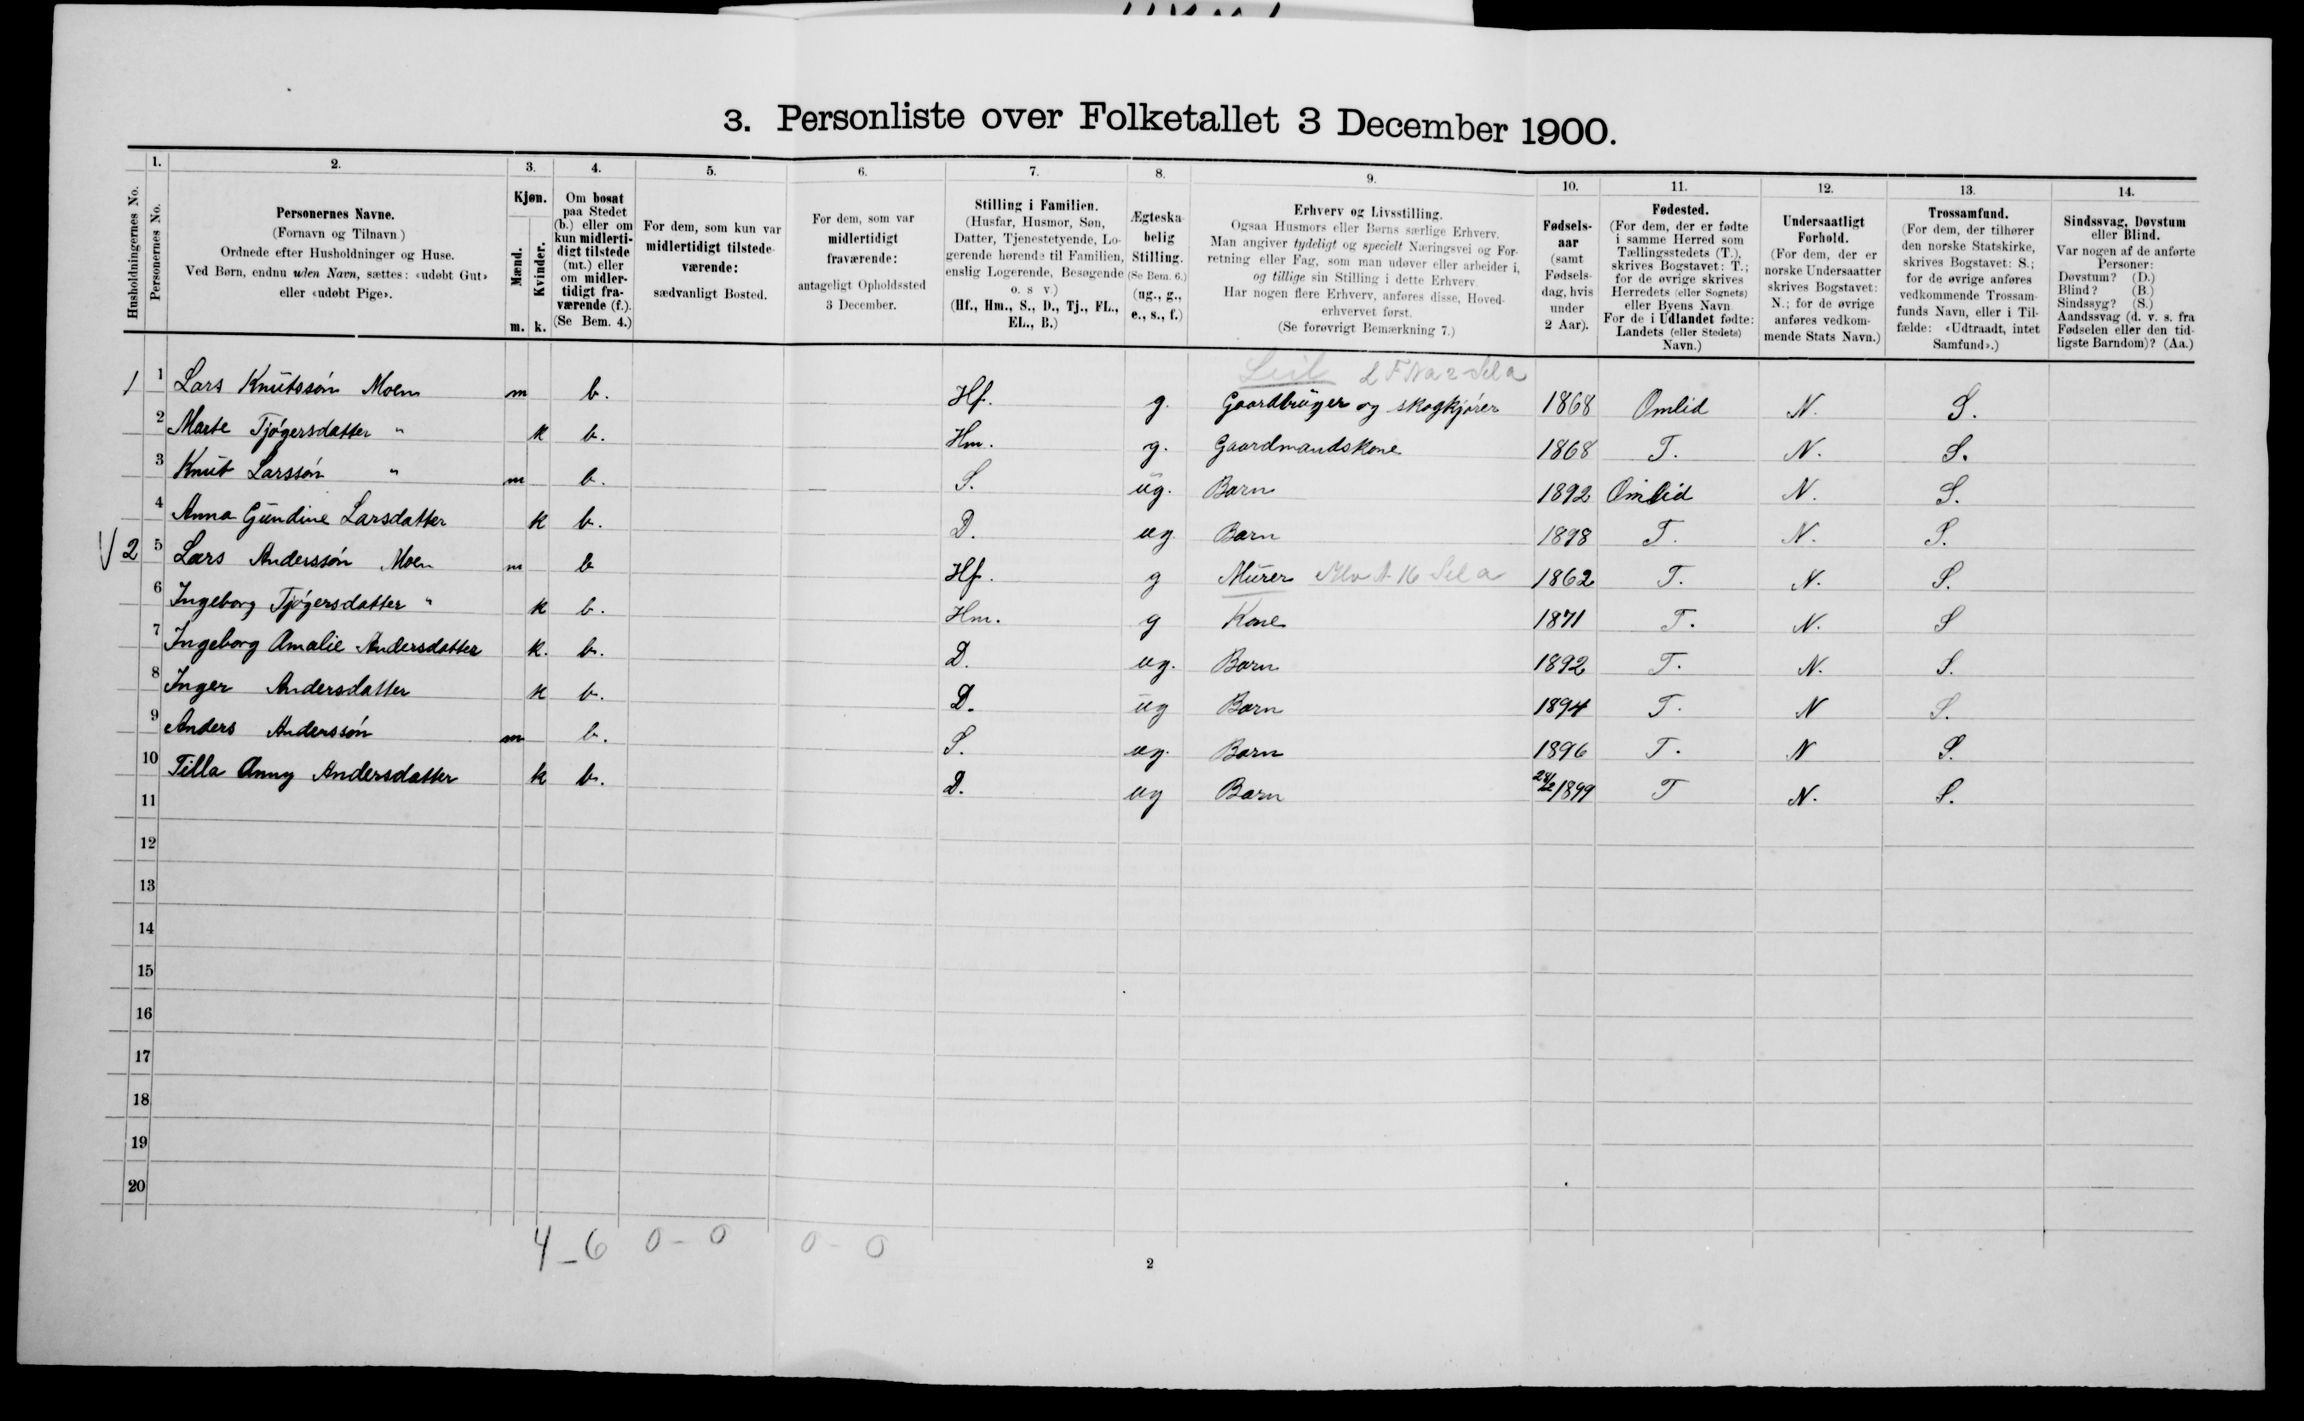 3. Personliste over Folketallet 3 December 1900.
1. 2. 3. 4. 5. 6. 7. 8. 9. 10. 11. 12. 13. 14.
Husholdningernes No.
Personernes No.
Personernes Navne.
(Fornavn og Tilnavn.)
Ordnede efter Husholdninger og Huse.
Ved Børn, endnu uden Navn, sættes: «udøbt Gut»
eller «udøbt Pige».
Kjøn.
Mænd.
Kvinder.
m. k.
Om bosat
paa Stedet
(b.) eller om
kun midlerti-
digt tilstede
(mt.) eller
om midler-
tidigt fra-
værende (f.).
(Se Bem. 4.)
For dem, som kun var
midlertidigt tilstede-
værende:
sædvanligt Bosted.
For dem, som var
midlertidigt
fraværende:
antageligt Opholdssted
3 December.
Stilling i Familien.
(Husfar, Husmor, Søn,
Datter, Tjenestetyende, Lo-
gerende hørende til Familien,
enslig Logerende, Besøgende
o. s v.)
(Hf., Hm., S., D., Tj., FL.,
EL., B.)
Ægteska-
belig
Stilling.
(Se Bem. 6.)
(ug., g.,
e., s., f.)
Erhverv og Livsstilling.
Ogsaa Husmors eller Børns særlige Erhverv.
Man angiver tydeligt og specielt Næringsvei og For-
retning eller Fag, som man udøver eller arbeider i,
og tillige sin Stilling i dette Erhverv.
Har nogen flere Erhverv, anføres disse, Hoved-
erhvervet først.
(Se forøvrigt Bemærkning 7.)
Fødsels-
aar
(samt
Fødsels-
dag, hvis
under
2 Aar).
Fødested.
(For dem, der er fødte
i samme Herred som
Tællingsstedets (T.),
skrives Bogstavet: T.;
for de øvrige skrives
Herredets (eller Sognets)
eller Byens Navn.
For de i Udlandet fødte:
Landets (eller Stedets)
Navn.)
Undersaatligt
Forhold.
(For dem, der er
norske Undersaatter
skrives Bogstavet:
N.; for de øvrige
anføres vedkom-
mende Stats Navn.)
Trossamfund.
(For dem, der tilhører
den norske Statskirke,
skrives Bogstavet: S.;
for de øvrige anføres
vedkommende Trossam-
funds Navn, eller i Til-
fælde: «Udtraadt, intet
Samfund».)
Sindssvag, Døvstum
eller Blind.
Var nogen af de anførte
Personer:
Døvstum? (D.)
Blind? (B.)
Sindssyg? (S.)
Aandssvag (d. v. s. fra
Fødselen eller den tid-
ligste Barndom)? (Aa.)
1 1 Lars Knutssøn Moen m b. Hf. g. Gaardbruger og skogkjører 1868 Omlid N. S.
2 Marte Tjøgersdatter " k b. Hm. g. Gaardmandskone 1868 T. N. S.
3 Knut Larssøn " m b. S. ug. Barn 1892 Omlid N. S.
4 Anna Gundine Larsdatter k b. D. ug. Barn 1898 T. N. S.
2 5 Lars Anderssøn Moen m b Hf. g Murer 1862 T. N. S.
6 Ingeborg Tjøgersdatter " k b. Hm. g Kone 1871 T. N. S
7 Ingeborg Amalie Andersdatter k. b. D. ug. Barn 1892 T. N. S.
8 Inger Andersdatter k b. D. ug Barn 1894 T. N S.
9 Anders Anderssøn m b. S. ug. Barn 1896 T. N S.
10 Tilla Anny Andersdatter k b. D. ug Barn 1899 T N. S.
11
12
13
14
15
16
17
18
19
20
4 - 6 0 - 0 0 - 0
2